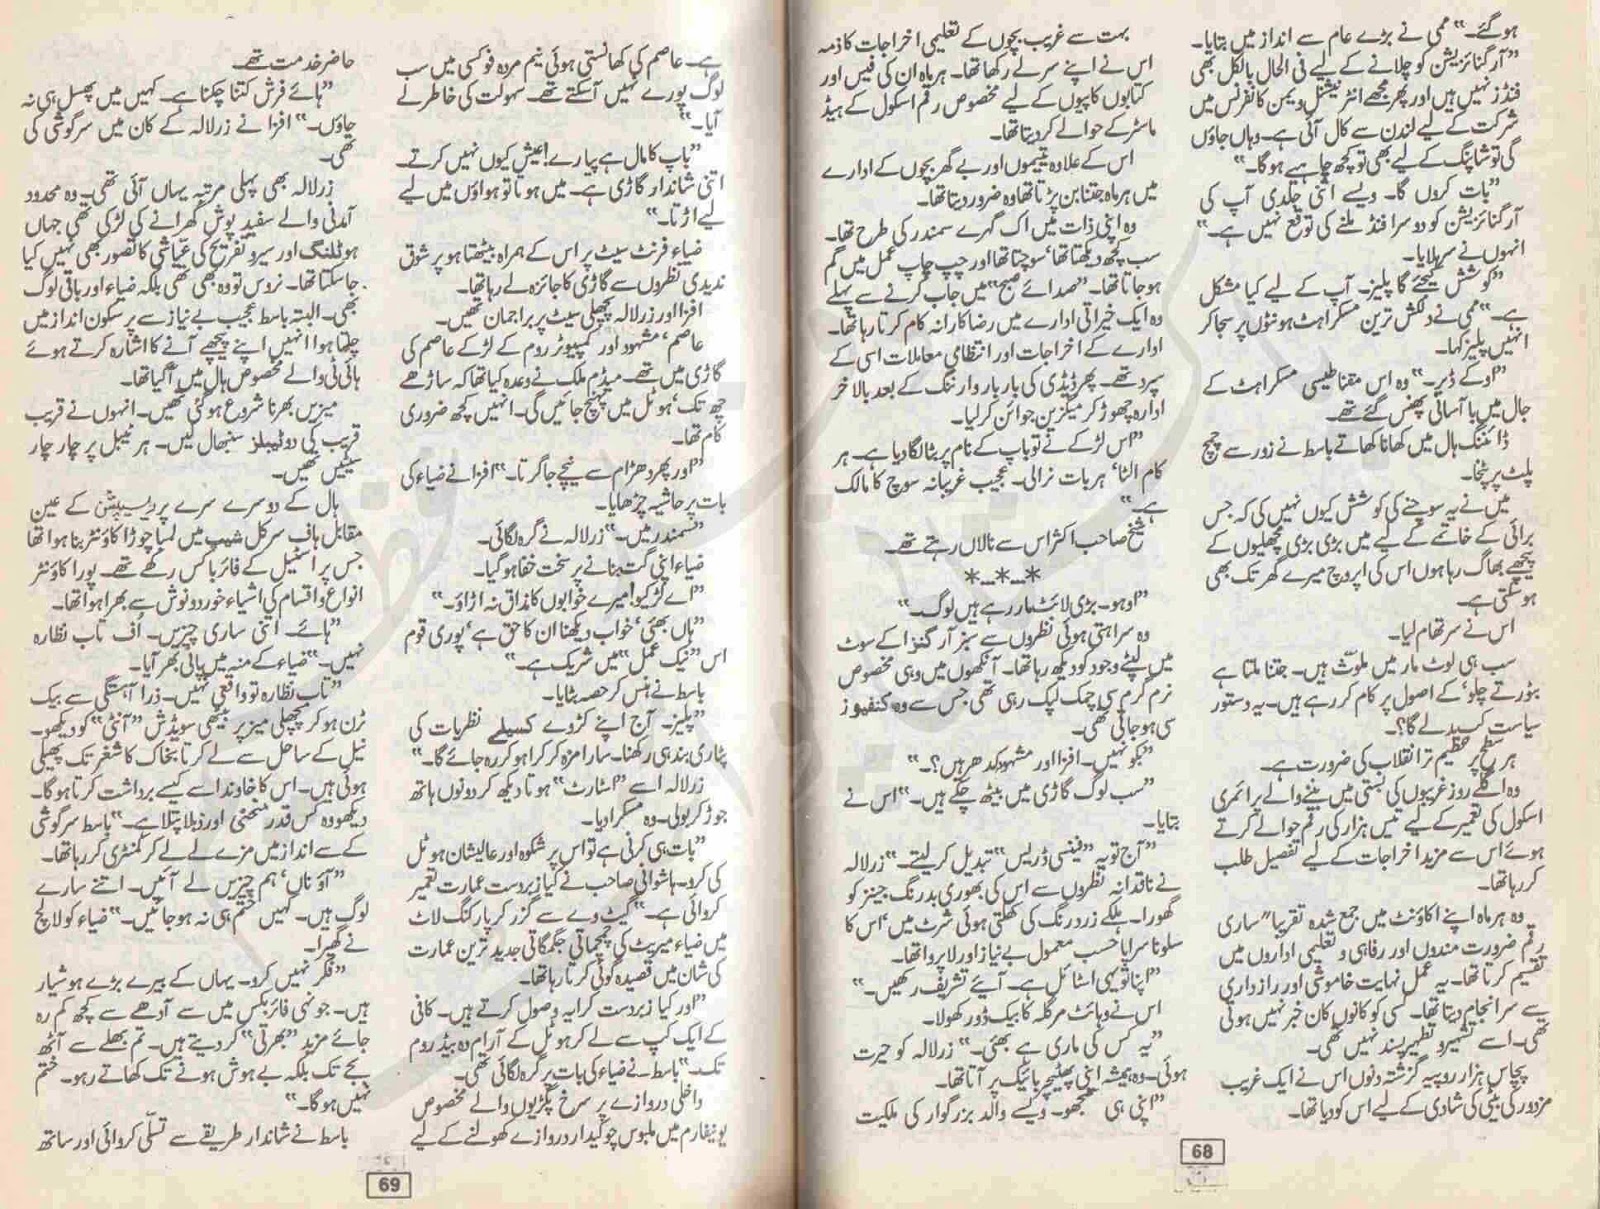 ہو گئے۔“ ممی نے بڑے عام سے انداز میں بتایا۔
”آرگنائزیشن کو چلانے کے لیے فی الحال بالکل بھی
فنڈز نہیں ہیں اور پھر مجھے انٹرنیشنل ویمن کانفرنس میں
شرکت کے لیے لندن سے کال آئی ہے۔ وہاں جاؤں
گی تو شاپنگ کے لیے بھی تو کچھ چاہیے ہو گا۔“
”بات کروں گا۔ ویسے اتنی جلدی آپ کی
آرگنائزیشن کو دوسرا فنڈ ملنے کی توقع نہیں ہے۔“
انہوں نے سر ہلایا۔
”کوشش کیجئے گا پلیز۔ آپ کے لیے کیا مشکل
ہے۔“ ممی نے دلکش ترین مسکراہٹ ہونٹوں پر سجا کر
انہیں پلیز کہا۔
”اوکے ڈیر۔“ وہ اس مقناطیسی مسکراہٹ کے
جال میں با آسانی پھنس گئے تھے۔
ڈائننگ ہال میں کھانا کھاتے باسط نے زور سے چمچ
پلیٹ پر پٹخا۔
میں نے یہ سوچنے کی کوشش کیوں نہیں کی کہ جس
برائی کے خاتمے کے لیے میں بڑی بڑی مچھلیوں کے
پیچھے بھاگ رہا ہوں اس کی اپروچ میرے گھر تک بھی
ہو سکتی ہے۔
اس نے سر تھام لیا۔
سب ہی لوٹ مار میں ملوث ہیں۔ جتنا ملتا ہے
بٹورتے چلو‘ کے اصول پر کام کر رہے ہیں۔ یہ دستور
سیاست کب بدلے گا؟۔
ہر سطح پر عظیم تر انقلاب کی ضرورت ہے۔
وہ اگلے روز غریبوں کی بستی میں بننے والے پرائمری
اسکول کی تعمیر کے لیے تیس ہزار کی رقم حوالے کرتے
ہوئے اس سے مزید اخراجات کے لیے تفصیل طلب
کر رہا تھا۔
وہ ہر ماہ اپنے اکاؤنٹ میں جمع شدہ تقریباً ساری
رقم ضرورت مندوں اور رفاہی و تعلیمی اداروں میں
تقسیم کرتا تھا۔ یہ عمل نہایت خاموشی اور رازداری
سے سرانجام دیتا تھا۔ کسی کو کانوں کان خبر نہیں ہوتی
تھی۔ اسے تشہیر و تطہیر پسند نہیں تھی۔
پچاس ہزار روپیہ گزشتہ دنوں اس نے ایک غریب
مزدور کی بیٹی کی شادی کے لیے اس کو دیا تھا۔
بہت سے غریب بچوں کے تعلیمی اخراجات کا ذمہ
اس نے اپنے سر لے رکھا تھا۔ ہر ماہ ان کی فیس اور
کتابوں کاپیوں کے لیے مخصوص رقم اسکول کے ہیڈ
ماسٹر کے حوالے کر دیتا تھا۔
اس کے علاوہ یتیموں اور بے گھر بچوں کے ادارے
میں ہر ماہ جتنا بن پڑتا تھا وہ ضرور دیتا تھا۔
وہ اپنی ذات میں اک گہرے سمندر کی طرح تھا۔
سب کچھ دیکھتا تھا‘ سوچتا تھا اور چپ چاپ عمل میں گم
ہو جاتا تھا۔ ”صدائے صبح“ میں جاب کرنے سے پہلے
وہ ایک خیراتی ادارے میں رضاکارانہ کام کرتا رہا تھا۔
ادارے کے اخراجات اور انتظامی معاملات اسی کے
سپرد تھے۔ پھر ڈیڈی کی بار بار وارننگ کے بعد بالاخر
ادارہ چھوڑ کر میگزین جوائن کر لیا۔
”اس لڑکے نے تو باپ کے نام پر بٹا لگا دیا ہے۔ ہر
کام الٹا‘ ہر بات نرالی۔ عجیب غریبانہ سوچ کا مالک
ہے۔“
شیخ صاحب اکثر اس سے نالاں رہتے تھے۔
*_*_*
”اوہو۔ بڑی لائٹ مار رہے ہیں لوگ۔“
وہ سراہتی ہوئی نظروں سے سبز آرگنزا کے سوٹ
میں لپٹے وجود کو دیکھ رہا تھا۔ آنکھوں میں وہی مخصوص
نرم گرم سی چمک لپک رہی تھی جس سے وہ کنفیوز
سی ہو جاتی تھی۔
”بکو نہیں۔ افزا اور مشہود کدھر ہیں؟۔“
”سب لوگ گاڑی میں بیٹھ چکے ہیں۔“ اس نے
بتایا۔
”آج تو یہ ”فینسی ڈریس“ تبدیل کر لیتے۔“ زرلالہ
نے ناقدانہ نظروں سے اس کی بھوری بدرنگ جینز کو
گھورا۔ ہلکے زرد رنگ کی گھستی ہوئی شرٹ میں‘ اس کا
سلونا سراپا حسب معمول بے نیاز اور لاپروا تھا۔
”اپنا تو یہی اسٹائل ہے۔ آئیے تشریف رکھیں۔“
اس نے وہائٹ مرگلہ کا بیک ڈور کھولا۔
”یہ کس کی ماری ہے بھئی۔“ زرلالہ کو حیرت
ہوئی۔ وہ ہمیشہ اپنی پھٹیچر بائیک پر آتا تھا۔
”اپنی ہی سمجھو۔ ویسے والد بزرگوار کی ملکیت
68
ہے۔ عاصم کی کھانستی ہوئی نیم مردہ فوکسی میں سب
لوگ پورے نہیں آ سکتے تھے۔ سہولت کی خاطر لے
آیا۔“
”باپ کا مال ہے پیارے! عیش کیوں نہیں کرتے۔
اتنی شاندار گاڑی ہے۔ میں ہوتا تو ہواؤں میں لیے
لیے اڑتا۔“
ضیاء فرنٹ سیٹ پر اس کے ہمراہ بیٹھتا ہو پر شوق
ندیدی نظروں سے گاڑی کا جائزہ لے رہا تھا۔
افزا اور زرلالہ پچھلی سیٹ پر براجمان تھیں۔
عاصم‘ مشہود اور کمپیوٹر روم کے لڑکے عاصم کی
گاڑی میں تھے۔ میڈم ملک نے وعدہ کیا تھا کہ ساڑھے
چھ تک‘ ہوٹل میں پہنچ جائیں گی۔ انہیں کچھ ضروری
کام تھا۔
”اور پھر دھڑام سے نیچے جا گرتا۔“ افزا نے ضیاء کی
بات پر حاشیہ چڑھایا۔
”سمندر میں۔“ زرلالہ نے گرہ لگائی۔
ضیاء اپنی گت بنانے پر سخت خفا ہو گیا۔
”اے لڑکیو! میرے خوابوں کا مذاق نہ اڑاؤ۔“
”ہاں بھئی‘ خواب دیکھنا ان کا حق ہے‘ پوری قوم
اس ”نیک عمل“ میں شریک ہے۔“
باسط نے ہنس کر حصہ بٹایا۔
”پلیز۔ آج اپنے کڑوے کسیلے نظریات کی
پٹاری بند ہی رکھنا۔ سارا مزہ کرکرا ہو کر رہ جائے گا۔“
زرلالہ اسے ”اسٹارٹ“ ہوتا دیکھ کر دونوں ہاتھ
جوڑ کر بولی۔ وہ مسکرا دیا۔
”بات ہی کرنی ہے تو اس پر شکوہ اور عالیشان ہوٹل
کی کرو۔ ہاشوانی صاحب نے کیا زبردست عمارت تعمیر
کروائی ہے۔“ گیٹ وے سے گزر کر پارکنگ لاٹ
میں ضیاء میریٹ کی چمچماتی جگمگاتی جدید ترین عمارت
کی شان میں قصیدہ گوئی کرتا رہا تھا۔
”اور کیا زبردست کرایہ وصول کرتے ہیں۔ کافی
کے ایک کپ سے لے کر ہوٹل کے آرام دہ بیڈ روم
تک۔“ باسط نے ضیاء کی بات پر گرہ لگائی تھی۔
داخلی دروازے پر سرخ پگڑیوں والے مخصوص
یونیفارم میں ملبوس چوکیدار دروازے کھولنے کے لیے
حاضر خدمت تھے۔
”ہائے فرش کتنا چکنا ہے۔ کہیں میں پھسل ہی نہ
جاؤں۔“ افزا نے زرلالہ کے کان میں سرگوشی کی
تھی۔
زرلالہ بھی پہلی مرتبہ یہاں آئی تھی۔ وہ محدود
آمدنی والے سفید پوش گھرانے کی لڑکی تھی جہاں
ہوٹلنگ اور سیر و تفریح کی عیاشی کا تصور بھی نہیں کیا
جا سکتا تھا۔ نروس تو وہ بھی تھی بلکہ ضیاء اور باقی لوگ
بھی۔ البتہ باسط عجیب بے نیاز سے پر سکون انداز میں
چلتا ہوا انہیں اپنے پیچھے آنے کا اشارہ کرتے ہوئے
ہائی ٹی والے مخصوص ہال میں آ گیا تھا۔
میزیں بھرنا شروع ہو گئی تھیں۔ انہوں نے قریب
قریب کی دو ٹیبلز سنبھال لیں۔ ہر ٹیبل پر چار چار
سیٹیں تھیں۔
ہال کے دوسرے سرے پر ریسیپشن کے عین
مقابل ہاف سرکل شیپ میں لمبا چوڑا کاؤنٹر بنا ہوا تھا
جس پر اسٹیل کے فائر باکس رکھے تھے۔ پورا کاؤنٹر
انواع و اقسام کی اشیاء خورد و نوش سے بھرا ہوا تھا۔
”ہائے۔ اتنی ساری چیزیں۔ اُف تاب نظارہ
نہیں۔“ ضیاء کے منہ میں پانی بھر آیا۔
”تاب نظارہ تو واقعی نہیں۔ ذرا آہستگی سے بیک
ٹرن ہو کر پچھلی میز پر بیٹھی سویڈش ”آنٹی“ کو دیکھو۔
نیل کے ساحل سے لے کر تا بخاک کاشغر تک پھیلی
ہوئی ہیں۔ اس کا خاوند اسے کیسے برداشت کرتا ہو گا۔
دیکھو وہ کس قدر منحنی اور دبلا پتلا ہے۔“ باسط سرگوشی
کے سے انداز میں مزے لے لے کر کمنٹری کر رہا تھا۔
”آؤ ناں‘ ہم چیزیں لے آئیں۔ اتنے سارے
لوگ ہیں۔ کہیں ختم ہی نہ ہو جائیں۔“ ضیاء کو لالچ
نے گھیرا۔
”فکر نہیں کرو۔ یہاں کے بیرے بڑے ہوشیار
ہیں۔ جونہی فائر بکس میں سے آدھے سے کچھ کم رہ
جائے مزید ”بھرتی“ کر دیتے ہیں۔ تم بھلے سے آٹھ
بجے تک بلکہ بے ہوش ہونے تک کھاتے رہو۔ ختم
نہیں ہو گا۔“
باسط نے شاندار طریقے سے تسلی کروائی اور ساتھ
69